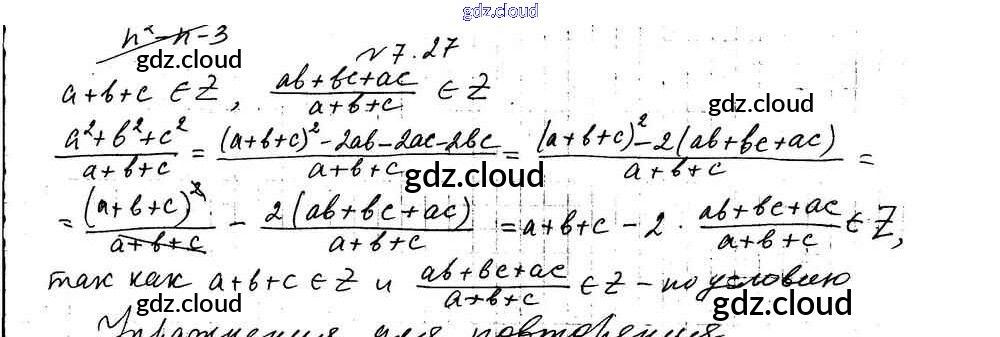 gdz.cloud
n² - n - 3
gdz.cloud
N 7.27
a+b+c ∈ Z, (ab+bc+ac)/(a+b+c) ∈ Z
gdz.cloud
(a²+b²+c²)/(a+b+c) = ((a+b+c)² - 2ab - 2ac - 2bc)/(a+b+c) = ((a+b+c)² - 2(ab+bc+ac))/(a+b+c) =
gdz.cloud
= (a+b+c)²/(a+b+c) - 2(ab+bc+ac)/(a+b+c) = a+b+c - 2 · (ab+bc+ac)/(a+b+c) ∈ Z,
gdz.cloud
так как a+b+c ∈ Z и (ab+bc+ac)/(a+b+c) ∈ Z - по условию
gdz.cloud gdz.cloud gdz.cloud
Упражнения для повторения